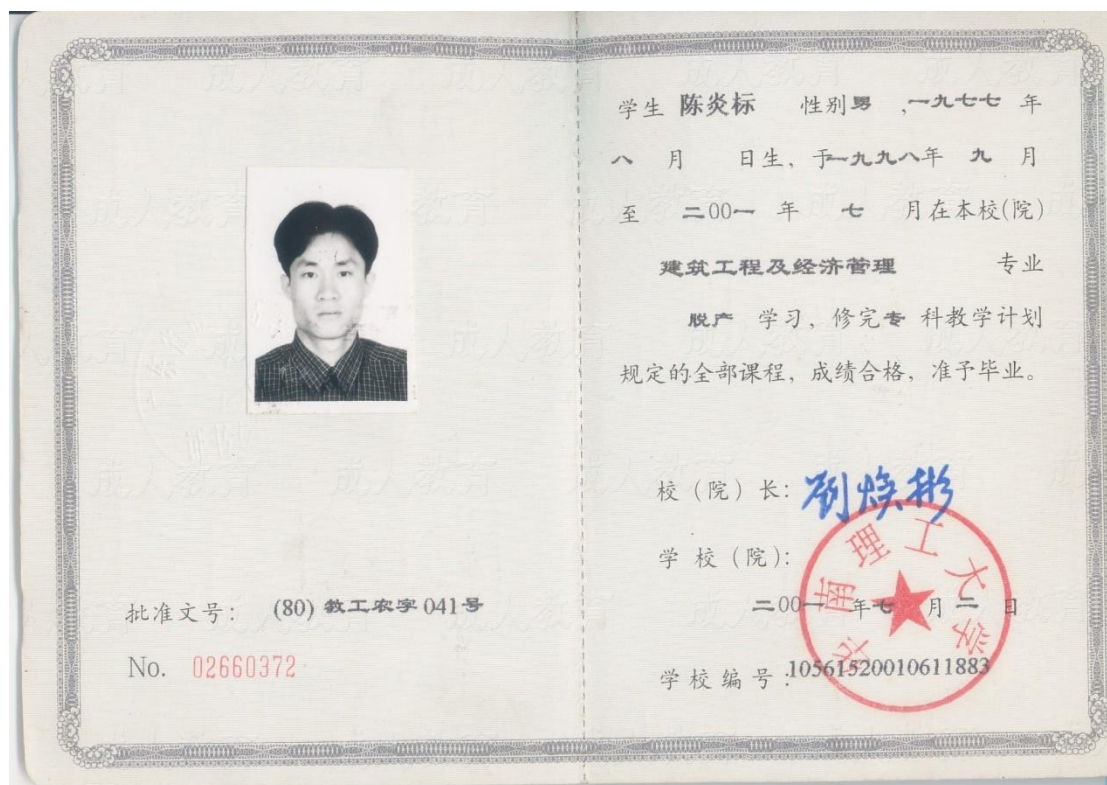 批准文号: (80) 教工农字 041号
No. 02660372
学生 陈炎标 性别男 ,一九七七 年
八 月 日生, 于一九九八年 九 月
至 二00一 年 七 月在本校(院)
建筑工程及经济管理 专业
脱产 学习, 修完专 科教学计划
规定的全部课程, 成绩合格, 准予毕业。
校 (院) 长: 刘焕彬
学 校 (院):
华南理工大学
二00一 年七 月 二 日
学 校 编 号: 10561520010611883
成人教育 成人教育 成人教育 成人教育